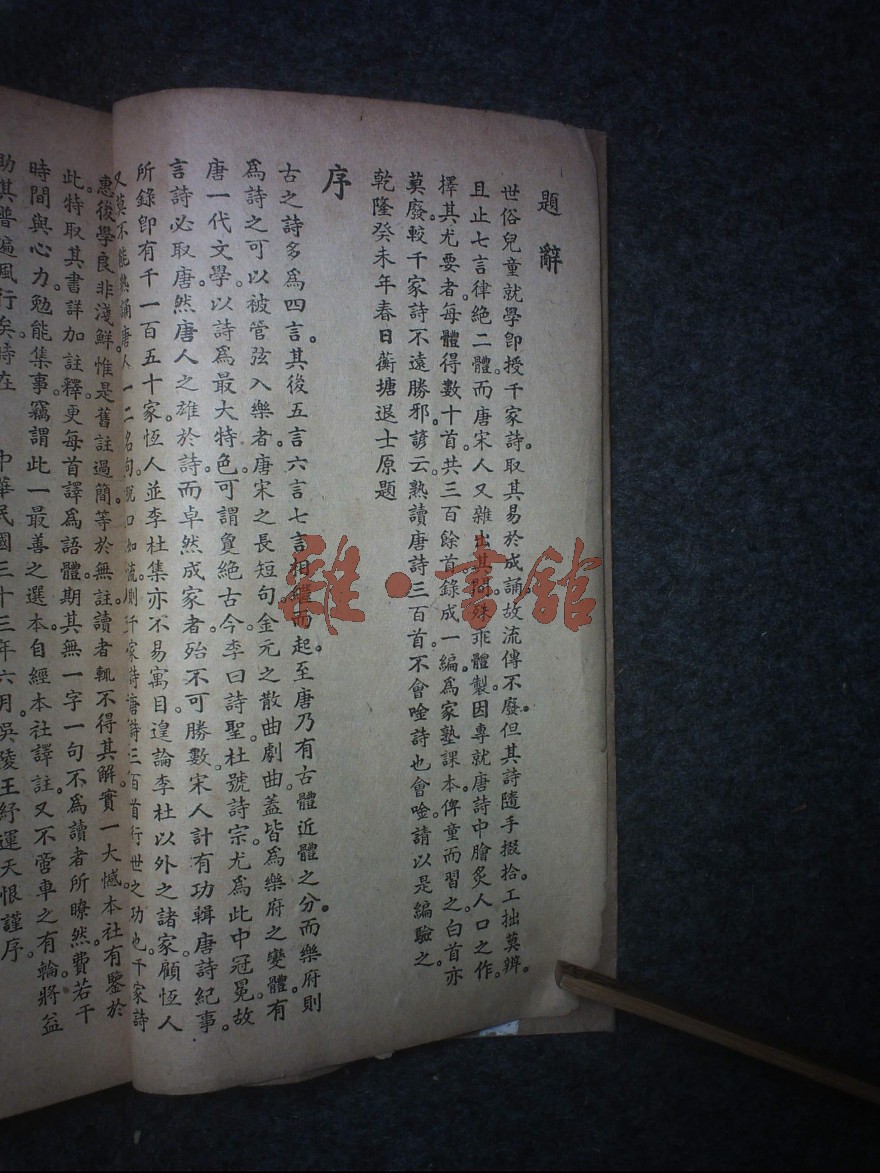 題辭
世俗兒童就學卽授千家詩。取其易於成誦。故流傳不廢。但其詩隨手掇拾。工拙莫辨。
且止七言律絕二體。而唐宋人又雜出其間。殊乖體製。因專就唐詩中膾炙人口之作。
擇其尤要者。每體得數十首。共三百餘首。錄成一編。爲家塾課本。俾童而習之。白首亦
莫廢。較千家詩不遠勝邪。諺云。熟讀唐詩三百首。不會唫詩也會唫。請以是編驗之。
乾隆癸未年春日蘅塘退士原題
序
古之詩多爲四言。其後五言六言七言相繼而起。至唐乃有古體近體之分。而樂府則
爲詩之可以被管弦入樂者。唐宋之長短句。金元之散曲劇曲。蓋皆爲樂府之變體。有
唐一代文學。以詩爲最大特色。可謂敻絕古今。李曰詩聖。杜號詩宗。尤爲此中冠冕。故
言詩必取唐。然唐人之雄於詩。而卓然成家者。殆不可勝數。宋人計有功輯唐詩紀事。
所錄卽有千一百五十家。恆人並李杜集亦不易寓目。遑論李杜以外之諸家。顧恆人
又莫不能熟誦唐人一二名句。脫口如流。則千家詩唐詩三百首行世之功也。千家詩
惠後學。良非淺鮮。惟是舊註過簡。等於無註。讀者輒不得其解。實一大憾。本社有鑒於
此。特取其書詳加註釋。更每首譯爲語體。期其無一字一句不爲讀者所瞭然。費若干
時間與心力。勉能集事。竊謂此一最善之選本。自經本社譯註。又不啻車之有輪。將益
助其普遍風行矣。時在 中華民國三十三年六月。吳陵王紓運天恨謹序。
雜·書館